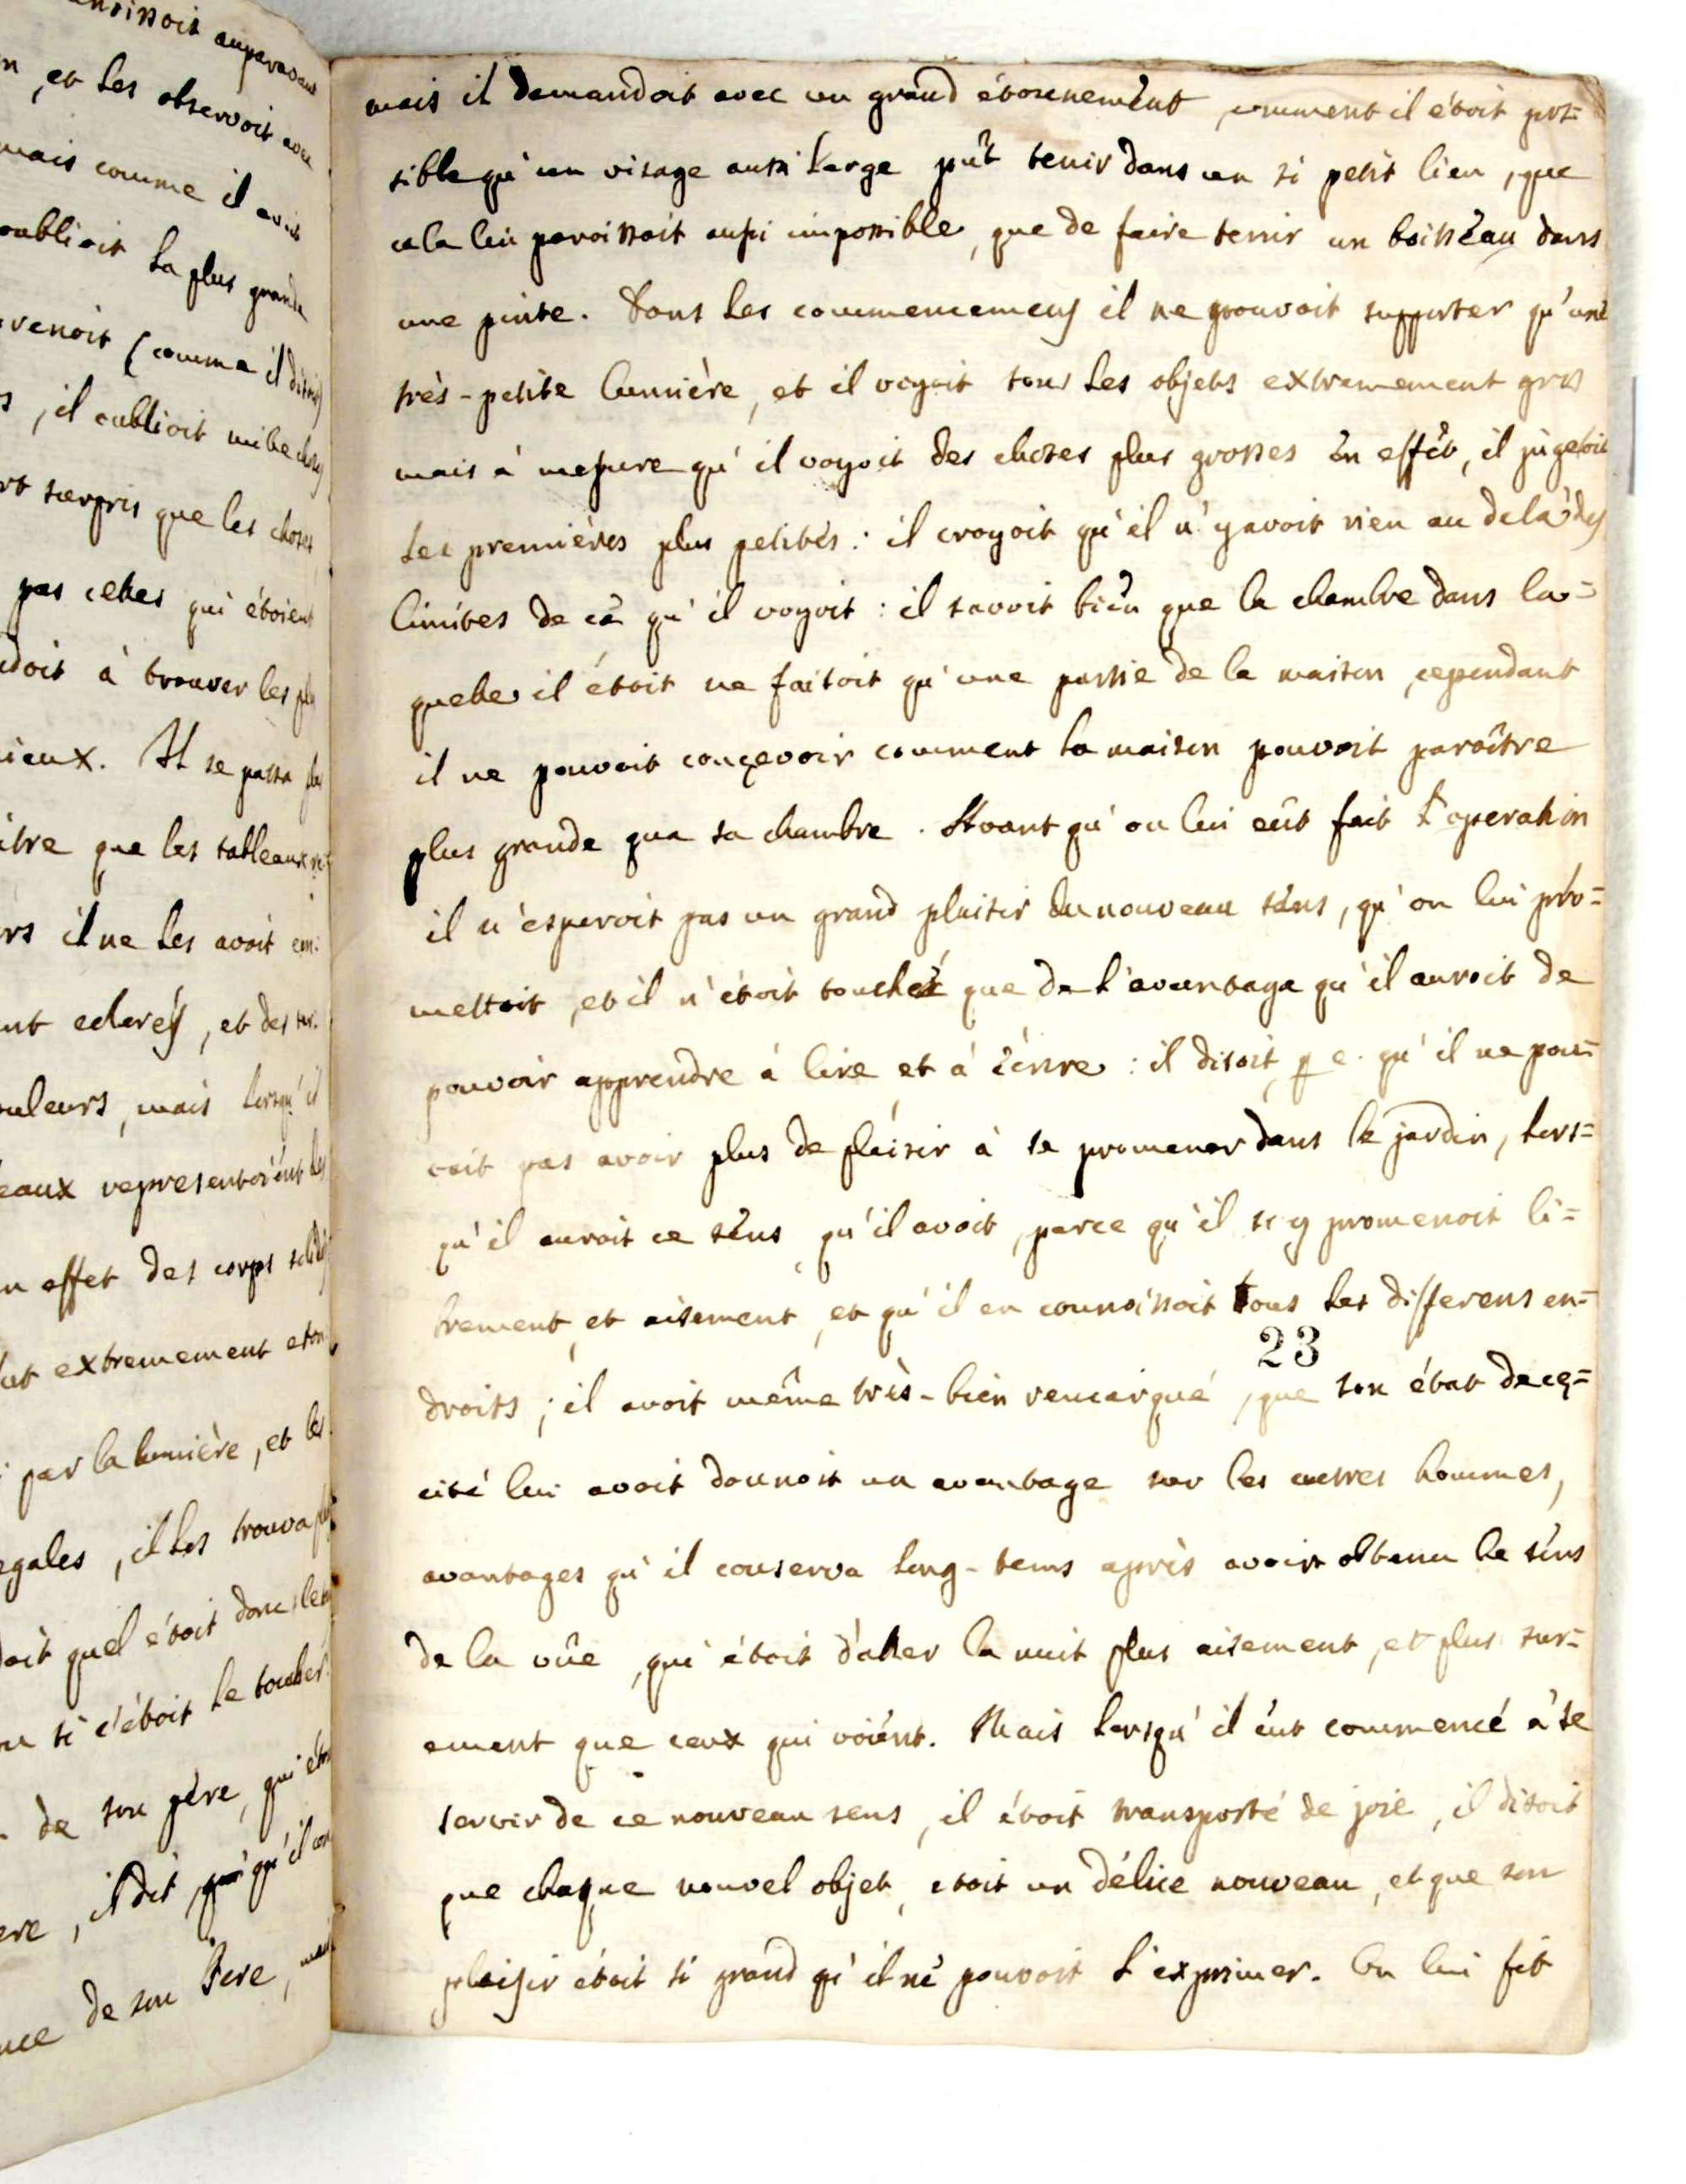 noissoit auparavant
n, et les observoit avec
mais comme il avoit
oublioit la plus grande
venoit (comme il disoit)
s, il oublioit mille choses
rt surpris que les choses
pas celles qui étoient
doit à trouver les plus
ieux. Il se passa plus
itre que les tableaux re-
rs il ne les avoit con-
ent eclerés, et des sur-
ouleurs, mais lorsqu'il
eaux representoiént les
n effet des corps solides
ut extremement eton
par la lumière, et les
egales, il les trouva plat
doit quel étoit donc le s
ou si c'étoit le touchér
de son père, qui étoit
ere, il dit, qu'il con
nce de son Pere, mais
mais il demandoit avec un grand étonnement, comment il étoit pos=
sible qu'un visage aussi large pût tenir dans un si petit lieu, que
cela lui paroissoit aussi impossible, que de faire tenir un boisseau dans
une pinte. Dans les commencemens il ne pouvoit supporter qu'une
très-petite lumière, et il voyoit tous les objets extremement gros
mais à mesure qu'il voyoit des choses plus grosses en effét, il jugeoit
les premières plus petites: il croyoit qu'il n'y avoit rien au delà des
limites de ce qu'il voyoit: il savoit bién que la chambre dans la=
quelle il étoit ne faisoit qu'une partie de la maison, cependant
il ne pouvoit conçevoir comment la maison pouvoit paroître
plus grande que sa chambre. Avant qu'on lui eût fait l'operation
il n'esperoit pas un grand plaisir du nouveau séns, qu'on lui pro=
mettoit, et il n'étoit touché que de l'avantage qu'il auroit de
pouvoir apprendre à lire et à écrire: il disoit, p e. qu'il ne pou=
voit pas avoir plus de plaisir à se promener dans le jardin, lors=
qu'il auroit ce séns, qu'il avoit, parce qu'il s'y promenoit li=
brement, et aisement, et qu'il en connoissoit tous les differens en=
23
droits; il avoit même très-bien remarqué, que son état de cé=
cité lui avoit donnoit un avantage sur les autres hommes,
avantages qu'il conserva long-tems après avoir obtenu le séns
de la vûe, qui étoit d'aller la nuit plus aisement, et plus sur=
ement que ceux qui voiént. Mais lorsqu'il eut commencé à se
servir de ce nouveau sens, il étoit transporté de joie, il disoit
que chaque nouvel objet, etoit un délice nouveau, et que son
plaisir étoit si grand qu'il ne pouvoit l'exprimer. On lui fit